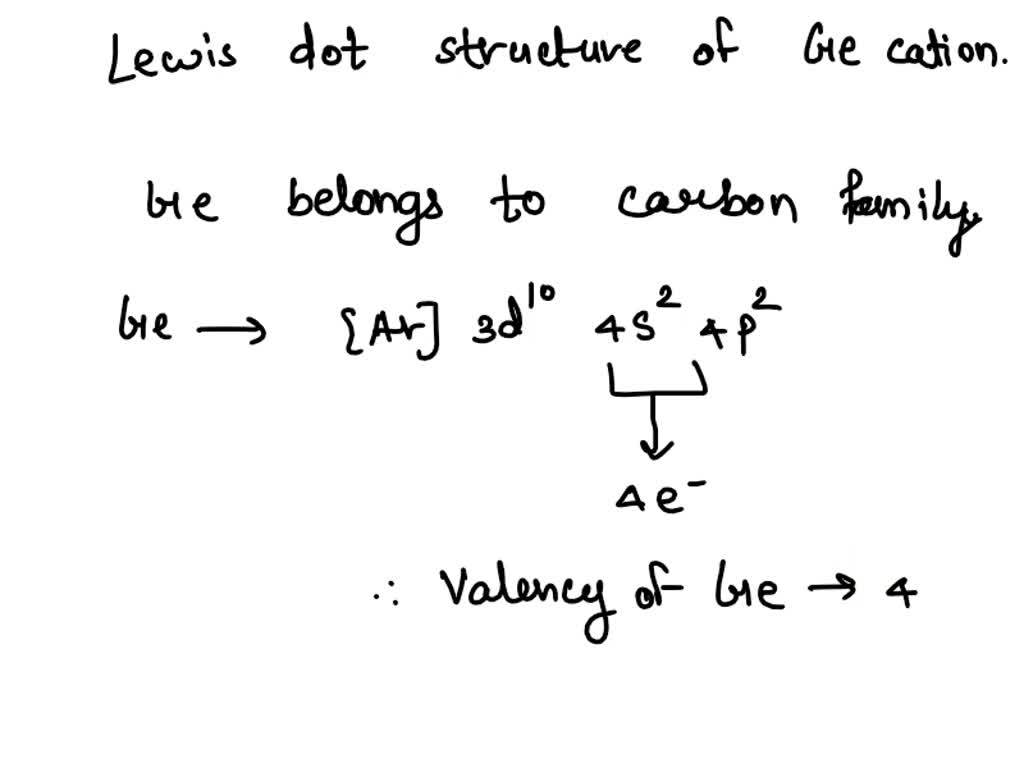 Lewis dot structure of Ge cation.
Ge belongs to carbon family.
Ge → [Ar] 3d¹⁰ 4s² 4p²
4e⁻
∴ Valency of Ge → 4